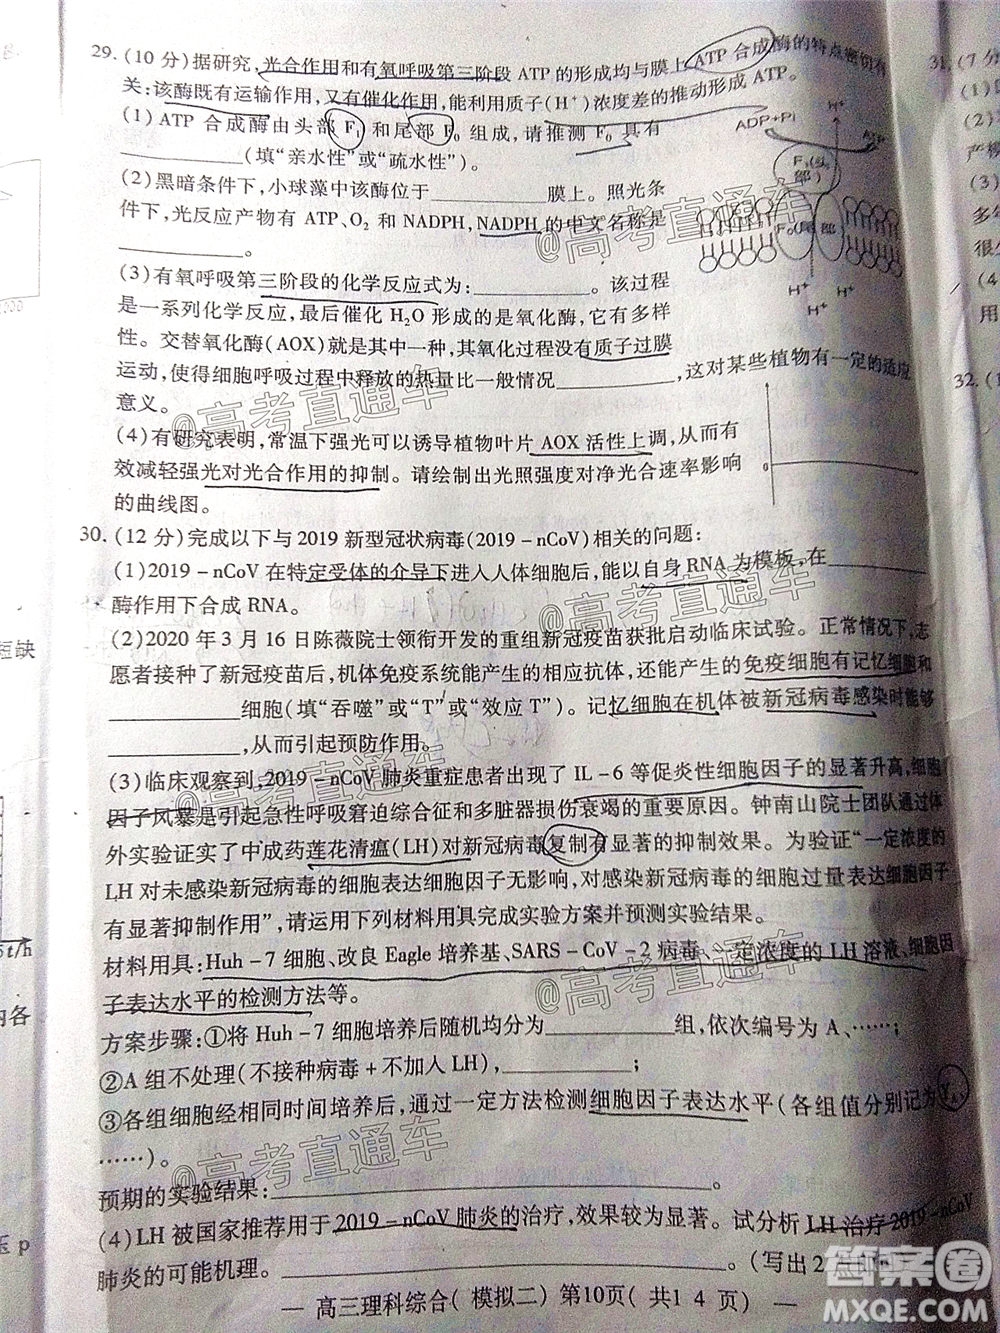 29. (10 分)据研究,光合作用和有氧呼吸第三阶段 ATP 的形成均与膜上 ATP 合成酶的特点密切有
关:该酶既有运输作用,又有催化作用,能利用质子(H⁺)浓度差的推动形成 ATP。
(1)ATP 合成酶由头部 F₁ 和尾部 F₀ 组成,请推测 F₀ 具有
____________(填“亲水性”或“疏水性”)。
(2)黑暗条件下,小球藻中该酶位于____________膜上。照光条
件下,光反应产物有 ATP、O₂ 和 NADPH,NADPH 的中文名称是
____________。
(3)有氧呼吸第三阶段的化学反应式为:____________。该过程
是一系列化学反应,最后催化 H₂O 形成的是氧化酶,它有多样
性。交替氧化酶(AOX)就是其中一种,其氧化过程没有质子过膜
运动,使得细胞呼吸过程中释放的热量比一般情况____________,这对某些植物有一定的适应
意义。
(4)有研究表明,常温下强光可以诱导植物叶片 AOX 活性上调,从而有
效减轻强光对光合作用的抑制。请绘制出光照强度对净光合速率影响
的曲线图。
H⁺
ADP+Pi
ATP
F₁(头部)
F₀(尾部)
H⁺
H⁺
H⁺
0
30. (12 分)完成以下与 2019 新型冠状病毒(2019-nCoV)相关的问题:
(1)2019-nCoV 在特定受体的介导下进入人体细胞后,能以自身 RNA 为模板,在____
酶作用下合成 RNA。
(2)2020 年 3 月 16 日陈薇院士领衔开发的重组新冠疫苗获批启动临床试验。正常情况下,志
愿者接种了新冠疫苗后,机体免疫系统能产生的相应抗体,还能产生的免疫细胞有记忆细胞和
____________细胞(填“吞噬”或“T”或“效应 T”)。记忆细胞在机体被新冠病毒感染时能够
____________,从而引起预防作用。
(3)临床观察到,2019-nCoV 肺炎重症患者出现了 IL-6 等促炎性细胞因子的显著升高,细胞
因子风暴是引起急性呼吸窘迫综合征和多脏器损伤衰竭的重要原因。钟南山院士团队通过体
外实验证实了中成药莲花清瘟(LH)对新冠病毒复制有显著的抑制效果。为验证“一定浓度的
LH 对未感染新冠病毒的细胞表达细胞因子无影响,对感染新冠病毒的细胞过量表达细胞因子
有显著抑制作用”,请运用下列材料用具完成实验方案并预测实验结果。
材料用具:Huh-7 细胞、改良 Eagle 培养基、SARS-CoV-2 病毒、一定浓度的 LH 溶液、细胞因
子表达水平的检测方法等。
方案步骤:①将 Huh-7 细胞培养后随机均分为____________组,依次编号为 A、……;
②A 组不处理(不接种病毒+不加入 LH),____________;
③各组细胞经相同时间培养后,通过一定方法检测细胞因子表达水平(各组值分别记为 Y_A、
……)。
预期的实验结果:____________。
(4)LH 被国家推荐用于 2019-nCoV 肺炎的治疗,效果较为显著。试分析 LH 治疗 2019-nCoV
肺炎的可能机理。____________(写出 2 点即可)
— 高三理科综合(模拟二) 第10页(共14页) —
31. (7 分
(1)
(2)
产模
(3)
多年
很
(4)
用
32. (1
短缺
t/h
内各
p
@高考直通车
@高考直通车
@高考直通车
@高考直通车
@高考直通车
@高考直通车
@高考直通车
答案圈
MXQE.COM